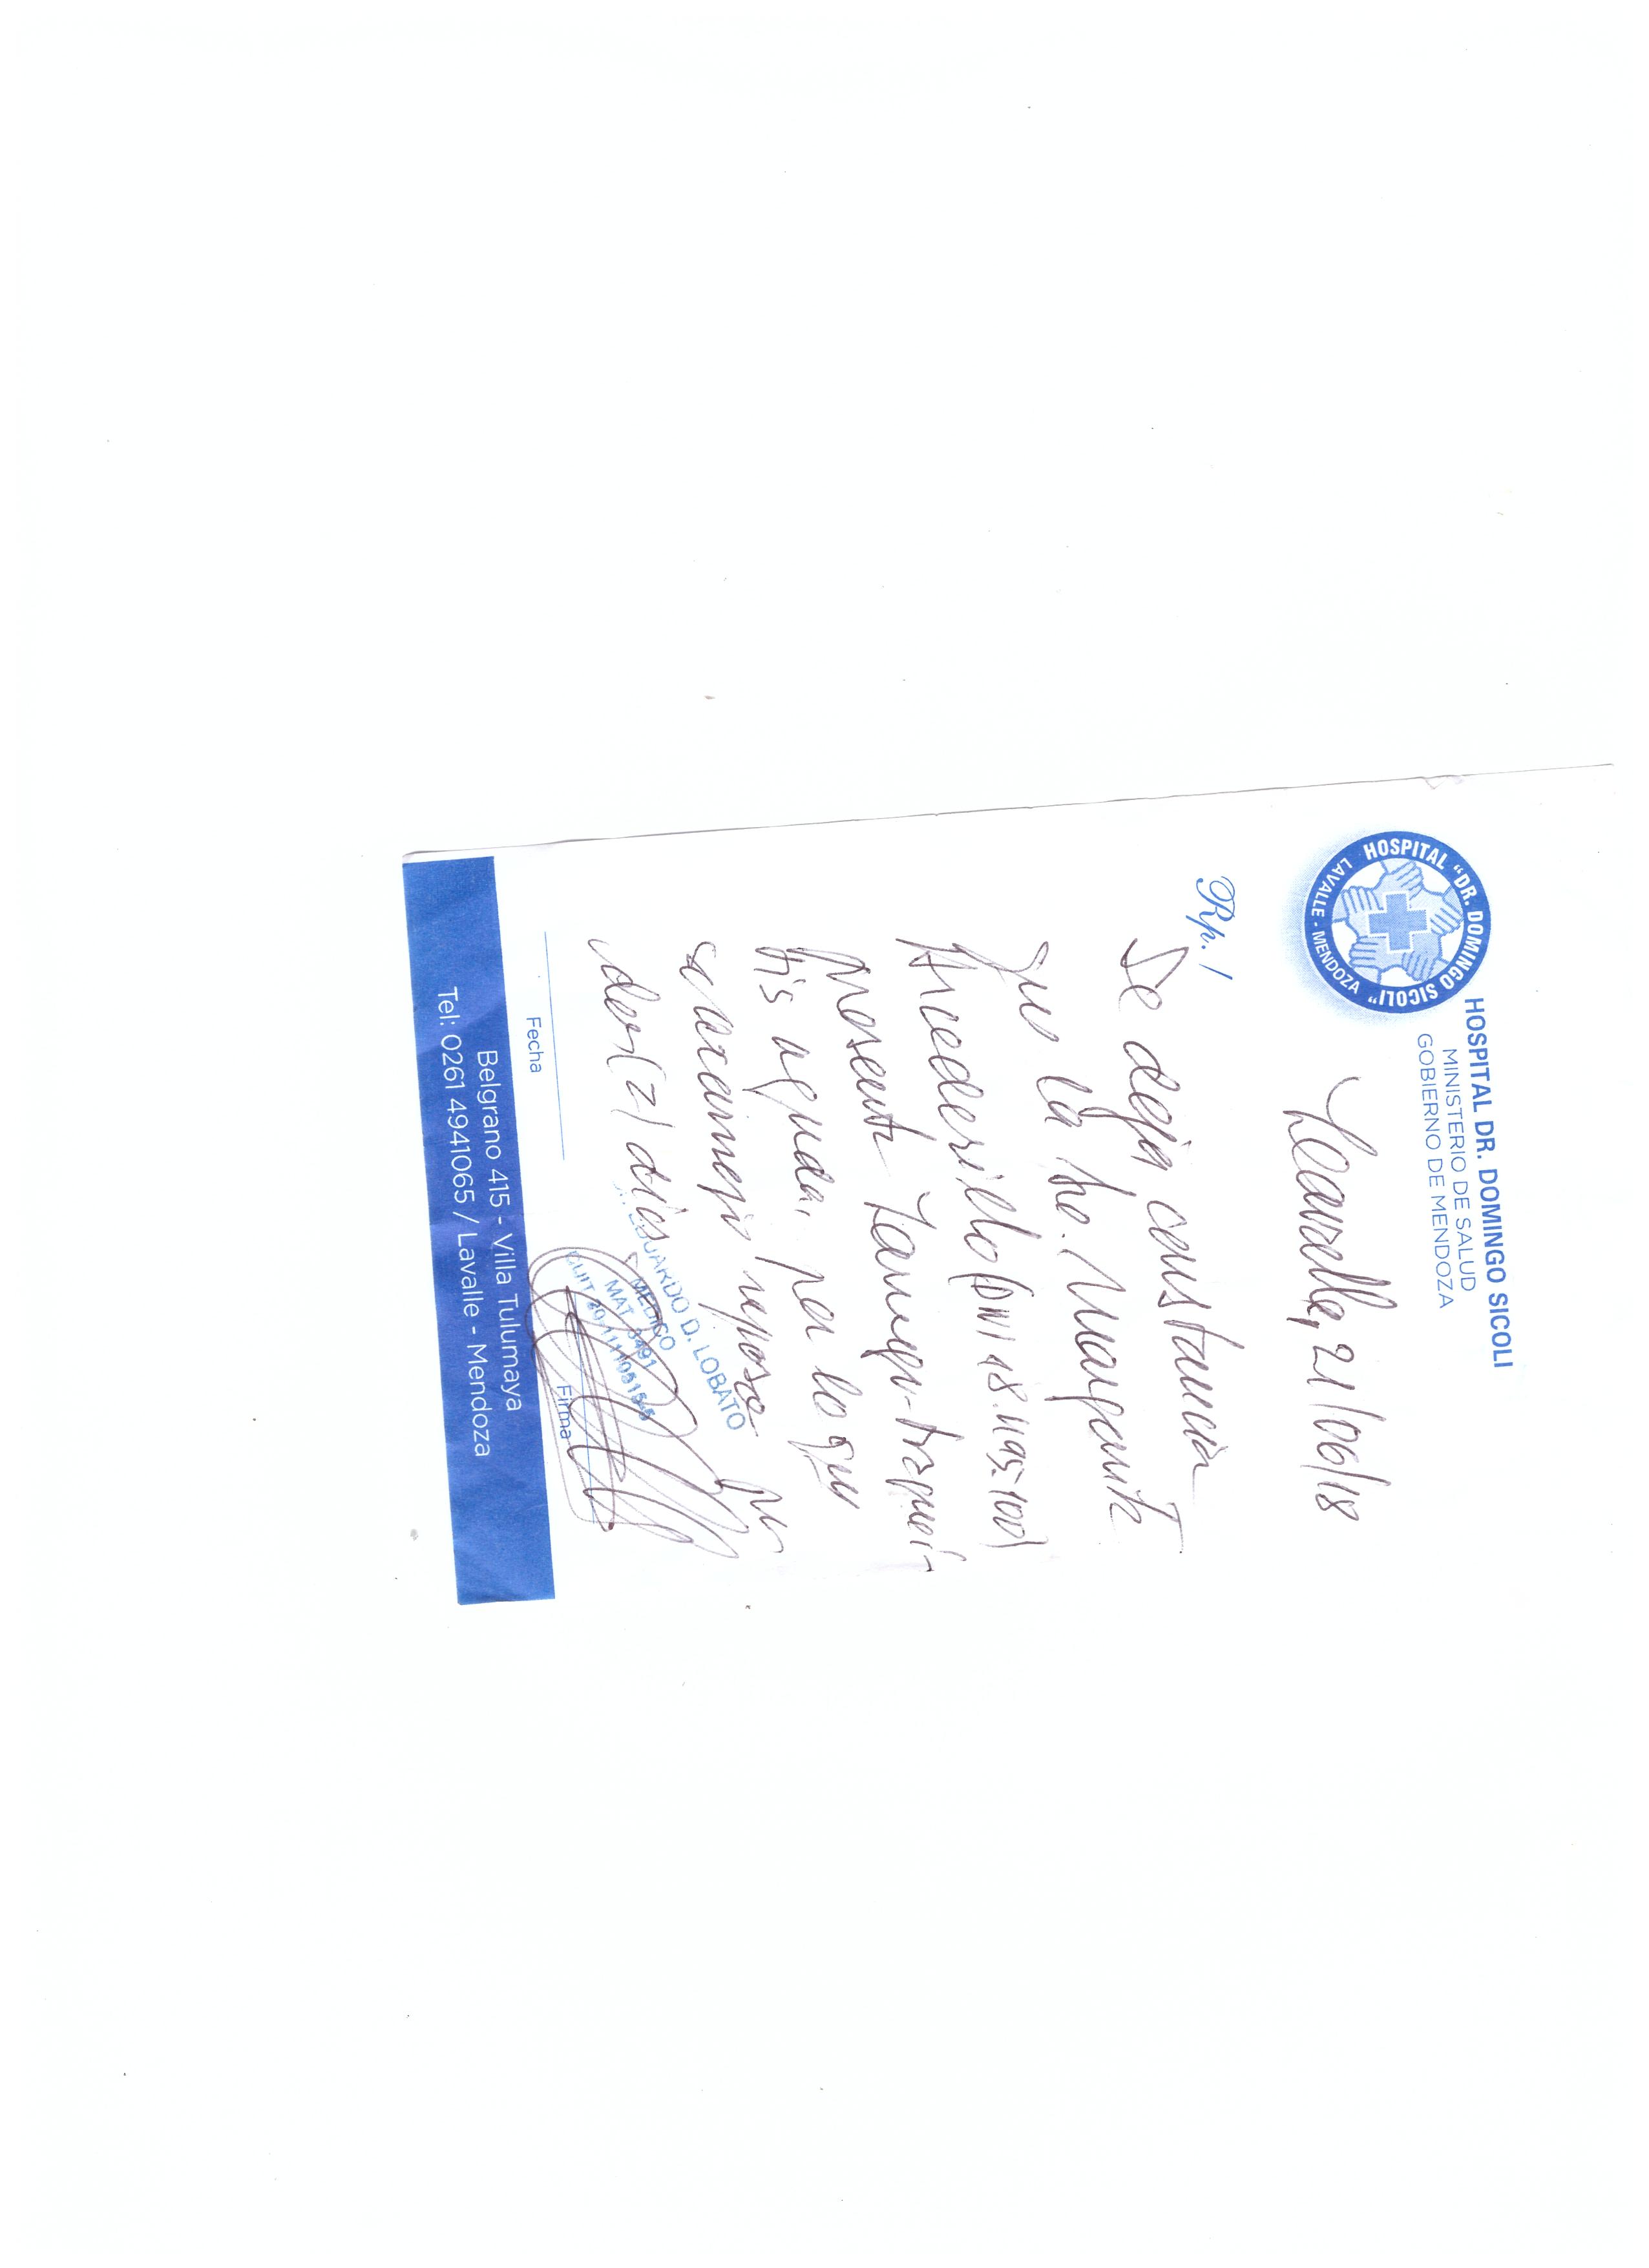 HOSPITAL "DR. DOMINGO SICOLI"
LAVALLE - MENDOZA
HOSPITAL DR. DOMINGO SICOLI
MINISTERIO DE SALUD
GOBIERNO DE MENDOZA
Lavalle, 21/06/18
Rp. /
Se deja constancia
que la Sra. Margarita
(DNI 18.495.100)
presenta Laringo-traquei-
tis aguda, por lo que
reposo por
dos (2) días
EDUARDO D. LOBATO
MEDICO
MAT. 3491
CUIT
Fecha
Firma
Belgrano 415 - Villa Tulumaya
Tel: 0261 4941065 / Lavalle - Mendoza